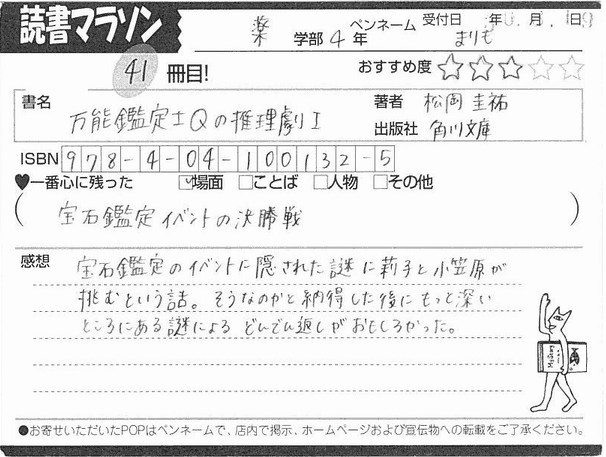 読書マラソン
薬 学部 4 年 ペンネーム まりも 受付日 年 月 日
41 冊目!
おすすめ度 ☆☆☆☆☆
書名 万能鑑定士Qの推理劇I
著者 松岡 圭祐
出版社 角川文庫
ISBN 978-4-04-100132-5
♥一番心に残った ☑場面 □ことば □人物 □その他
(宝石鑑定イベントの決勝戦)
感想 宝石鑑定のイベントに隠された謎に莉子と小笠原が
挑むという話。そうなのかと納得した後にもっと深い
ところにある謎によるどんでん返しがおもしろかった。
●お寄せいただいたPOPはペンネームで、店内で掲示、ホームページおよび宣伝物への転載をご了承ください。